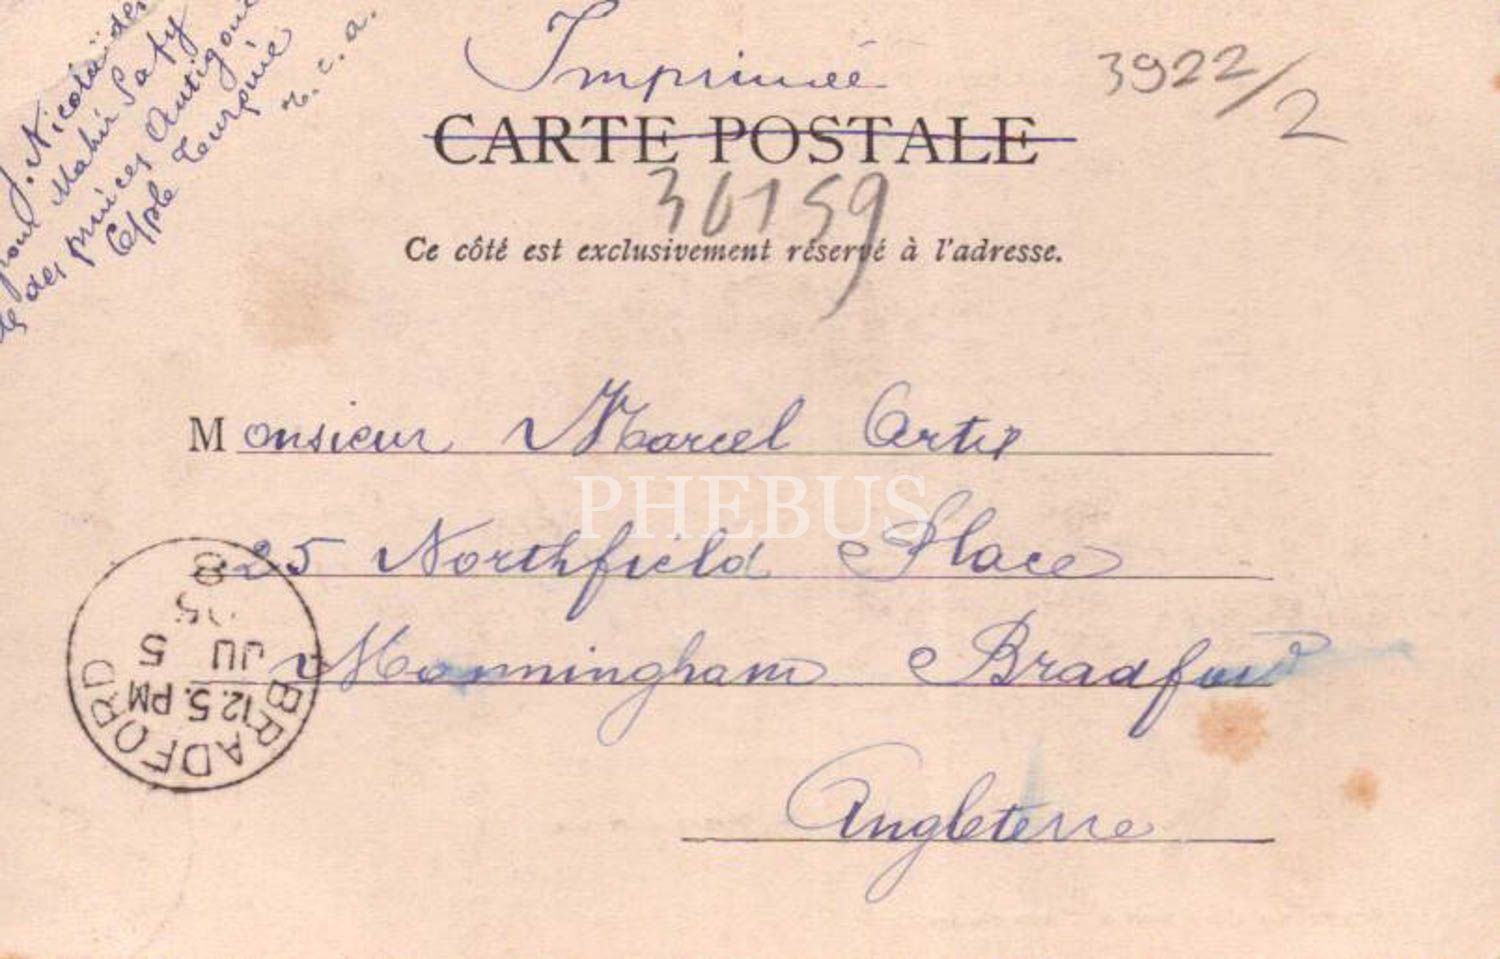 J. Nicolaïdes
pour Mahir Saty
des princes Antigonie
C/ple Turquie
Imprimée
3922/2
CARTE POSTALE
36159
Ce côté est exclusivement réservé à l'adresse.
Monsieur Marcel
PHEBUS
25 Northfield Place
Manningham Bradford
Angleterre
BRADFORD
12.5.PM
JU 5
05
8